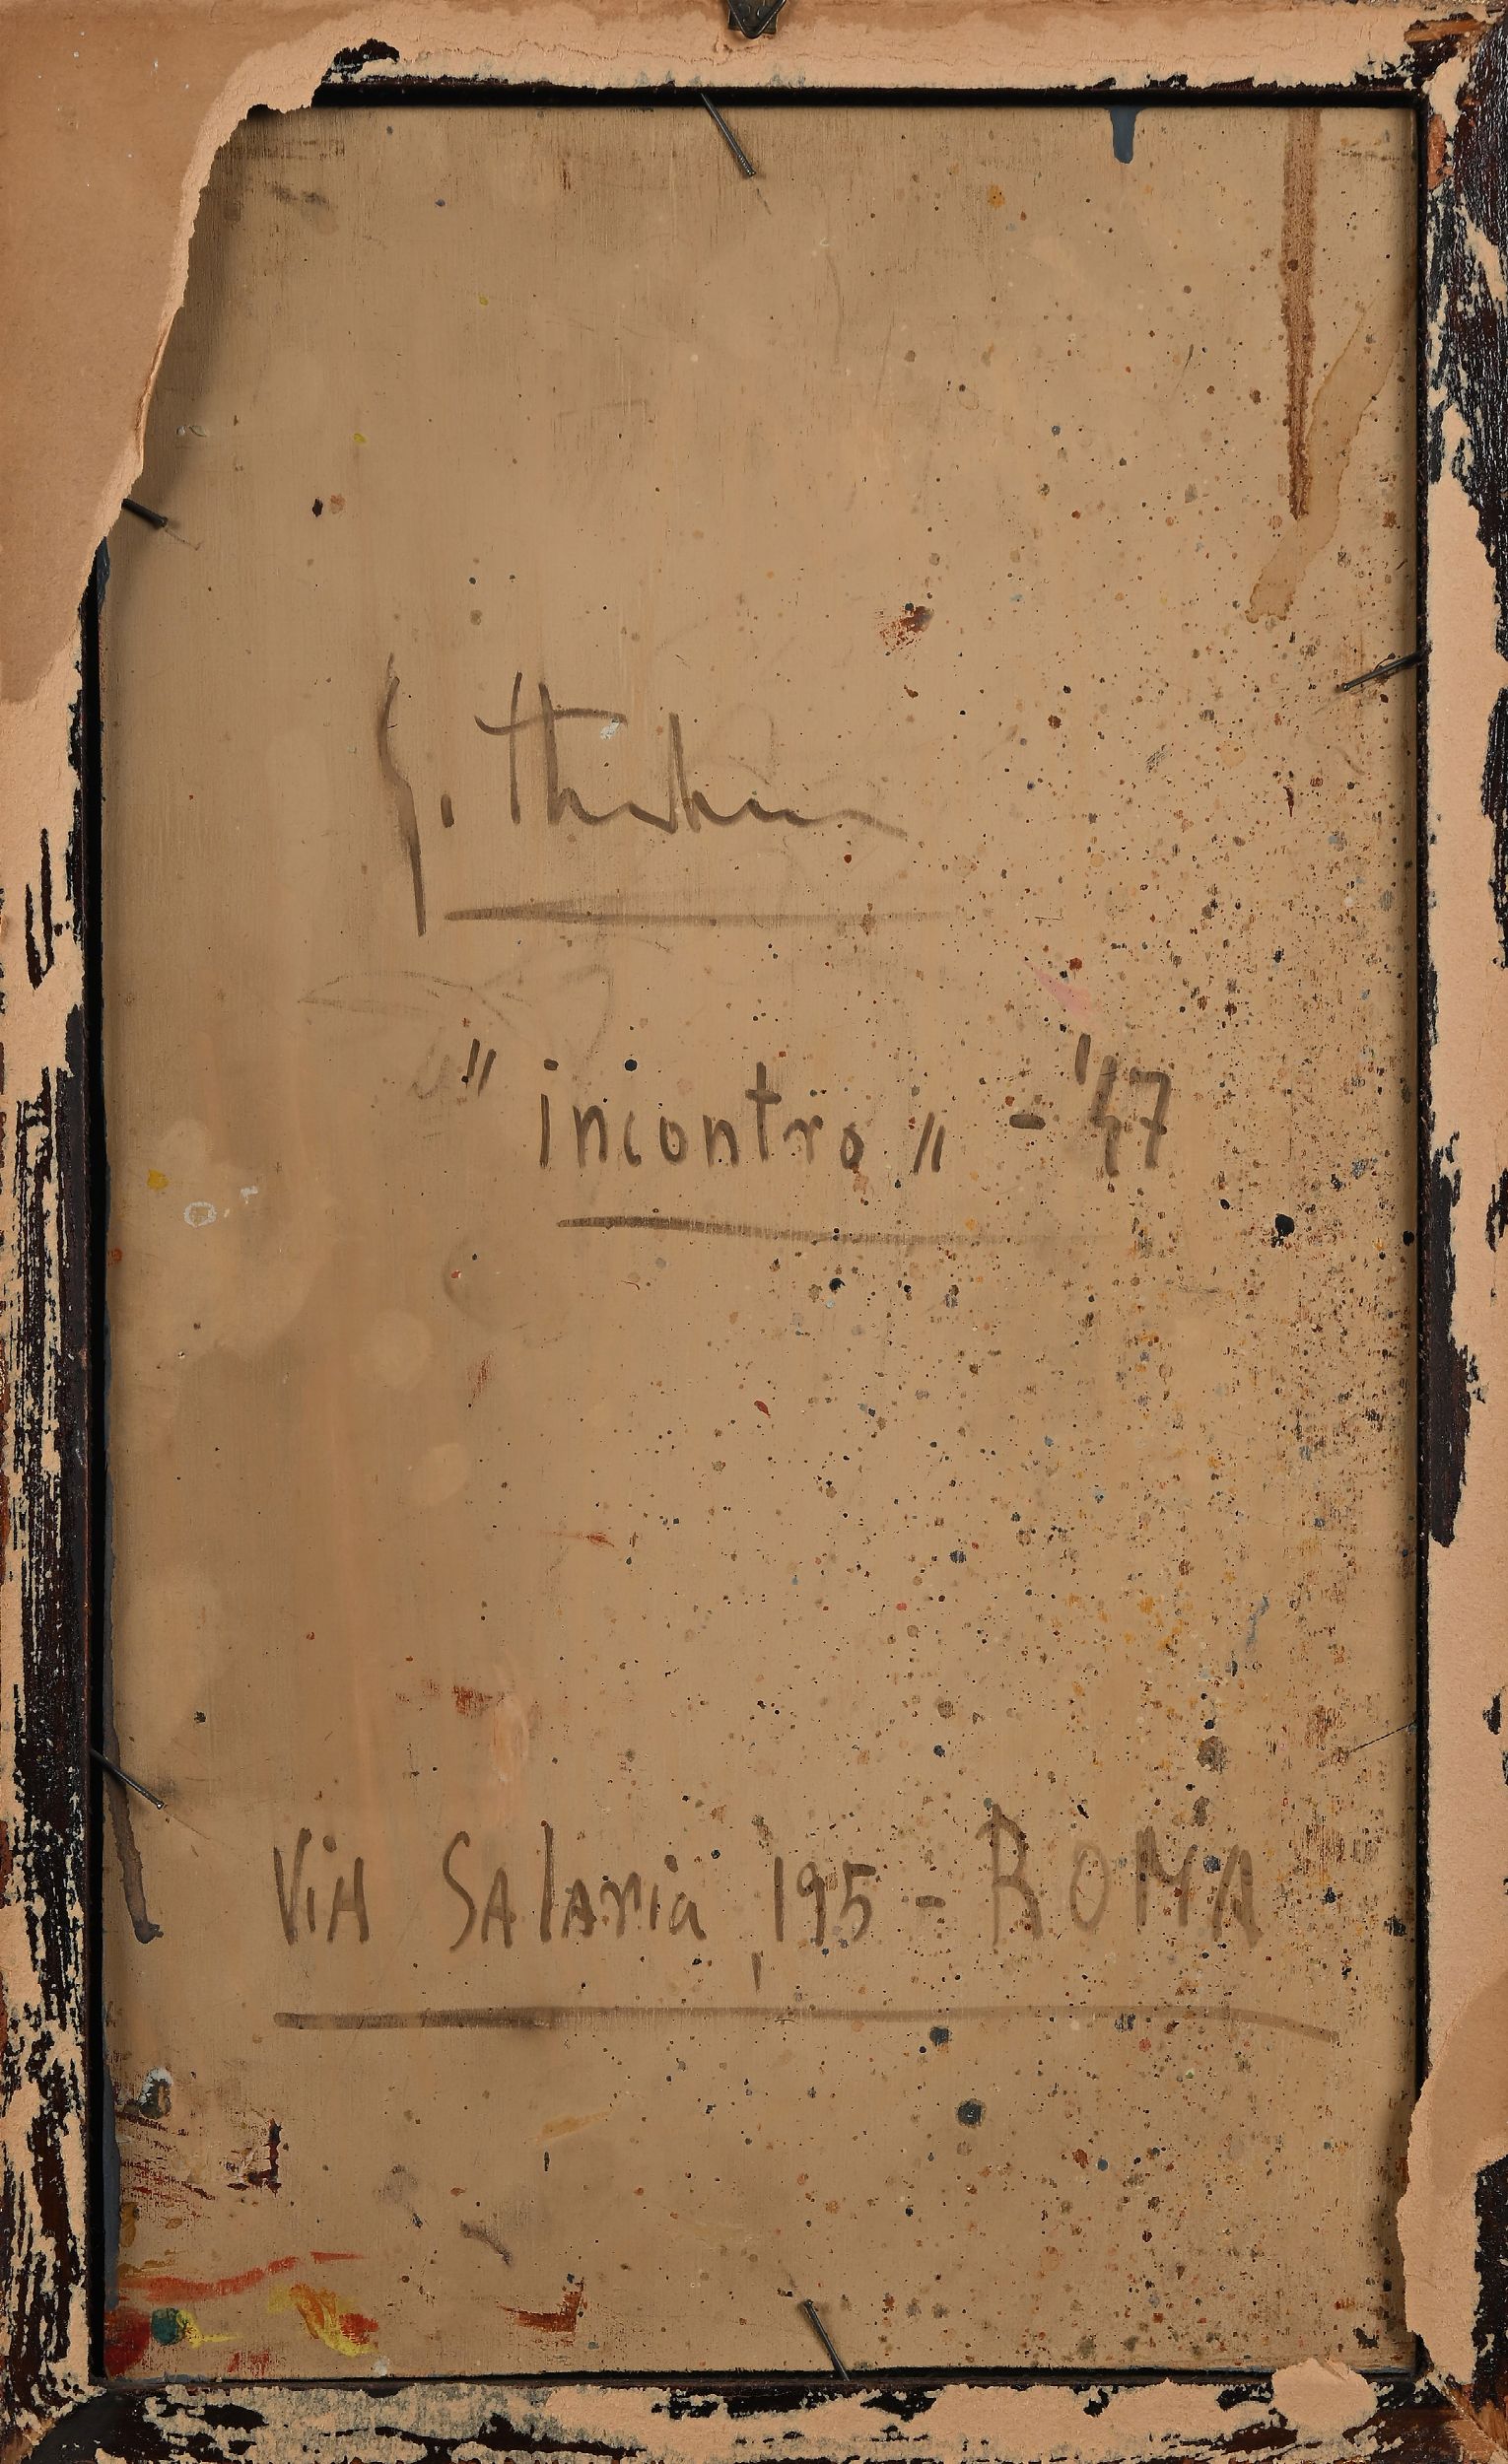 " incontro " - '47
Via Salaria 195 - ROMA